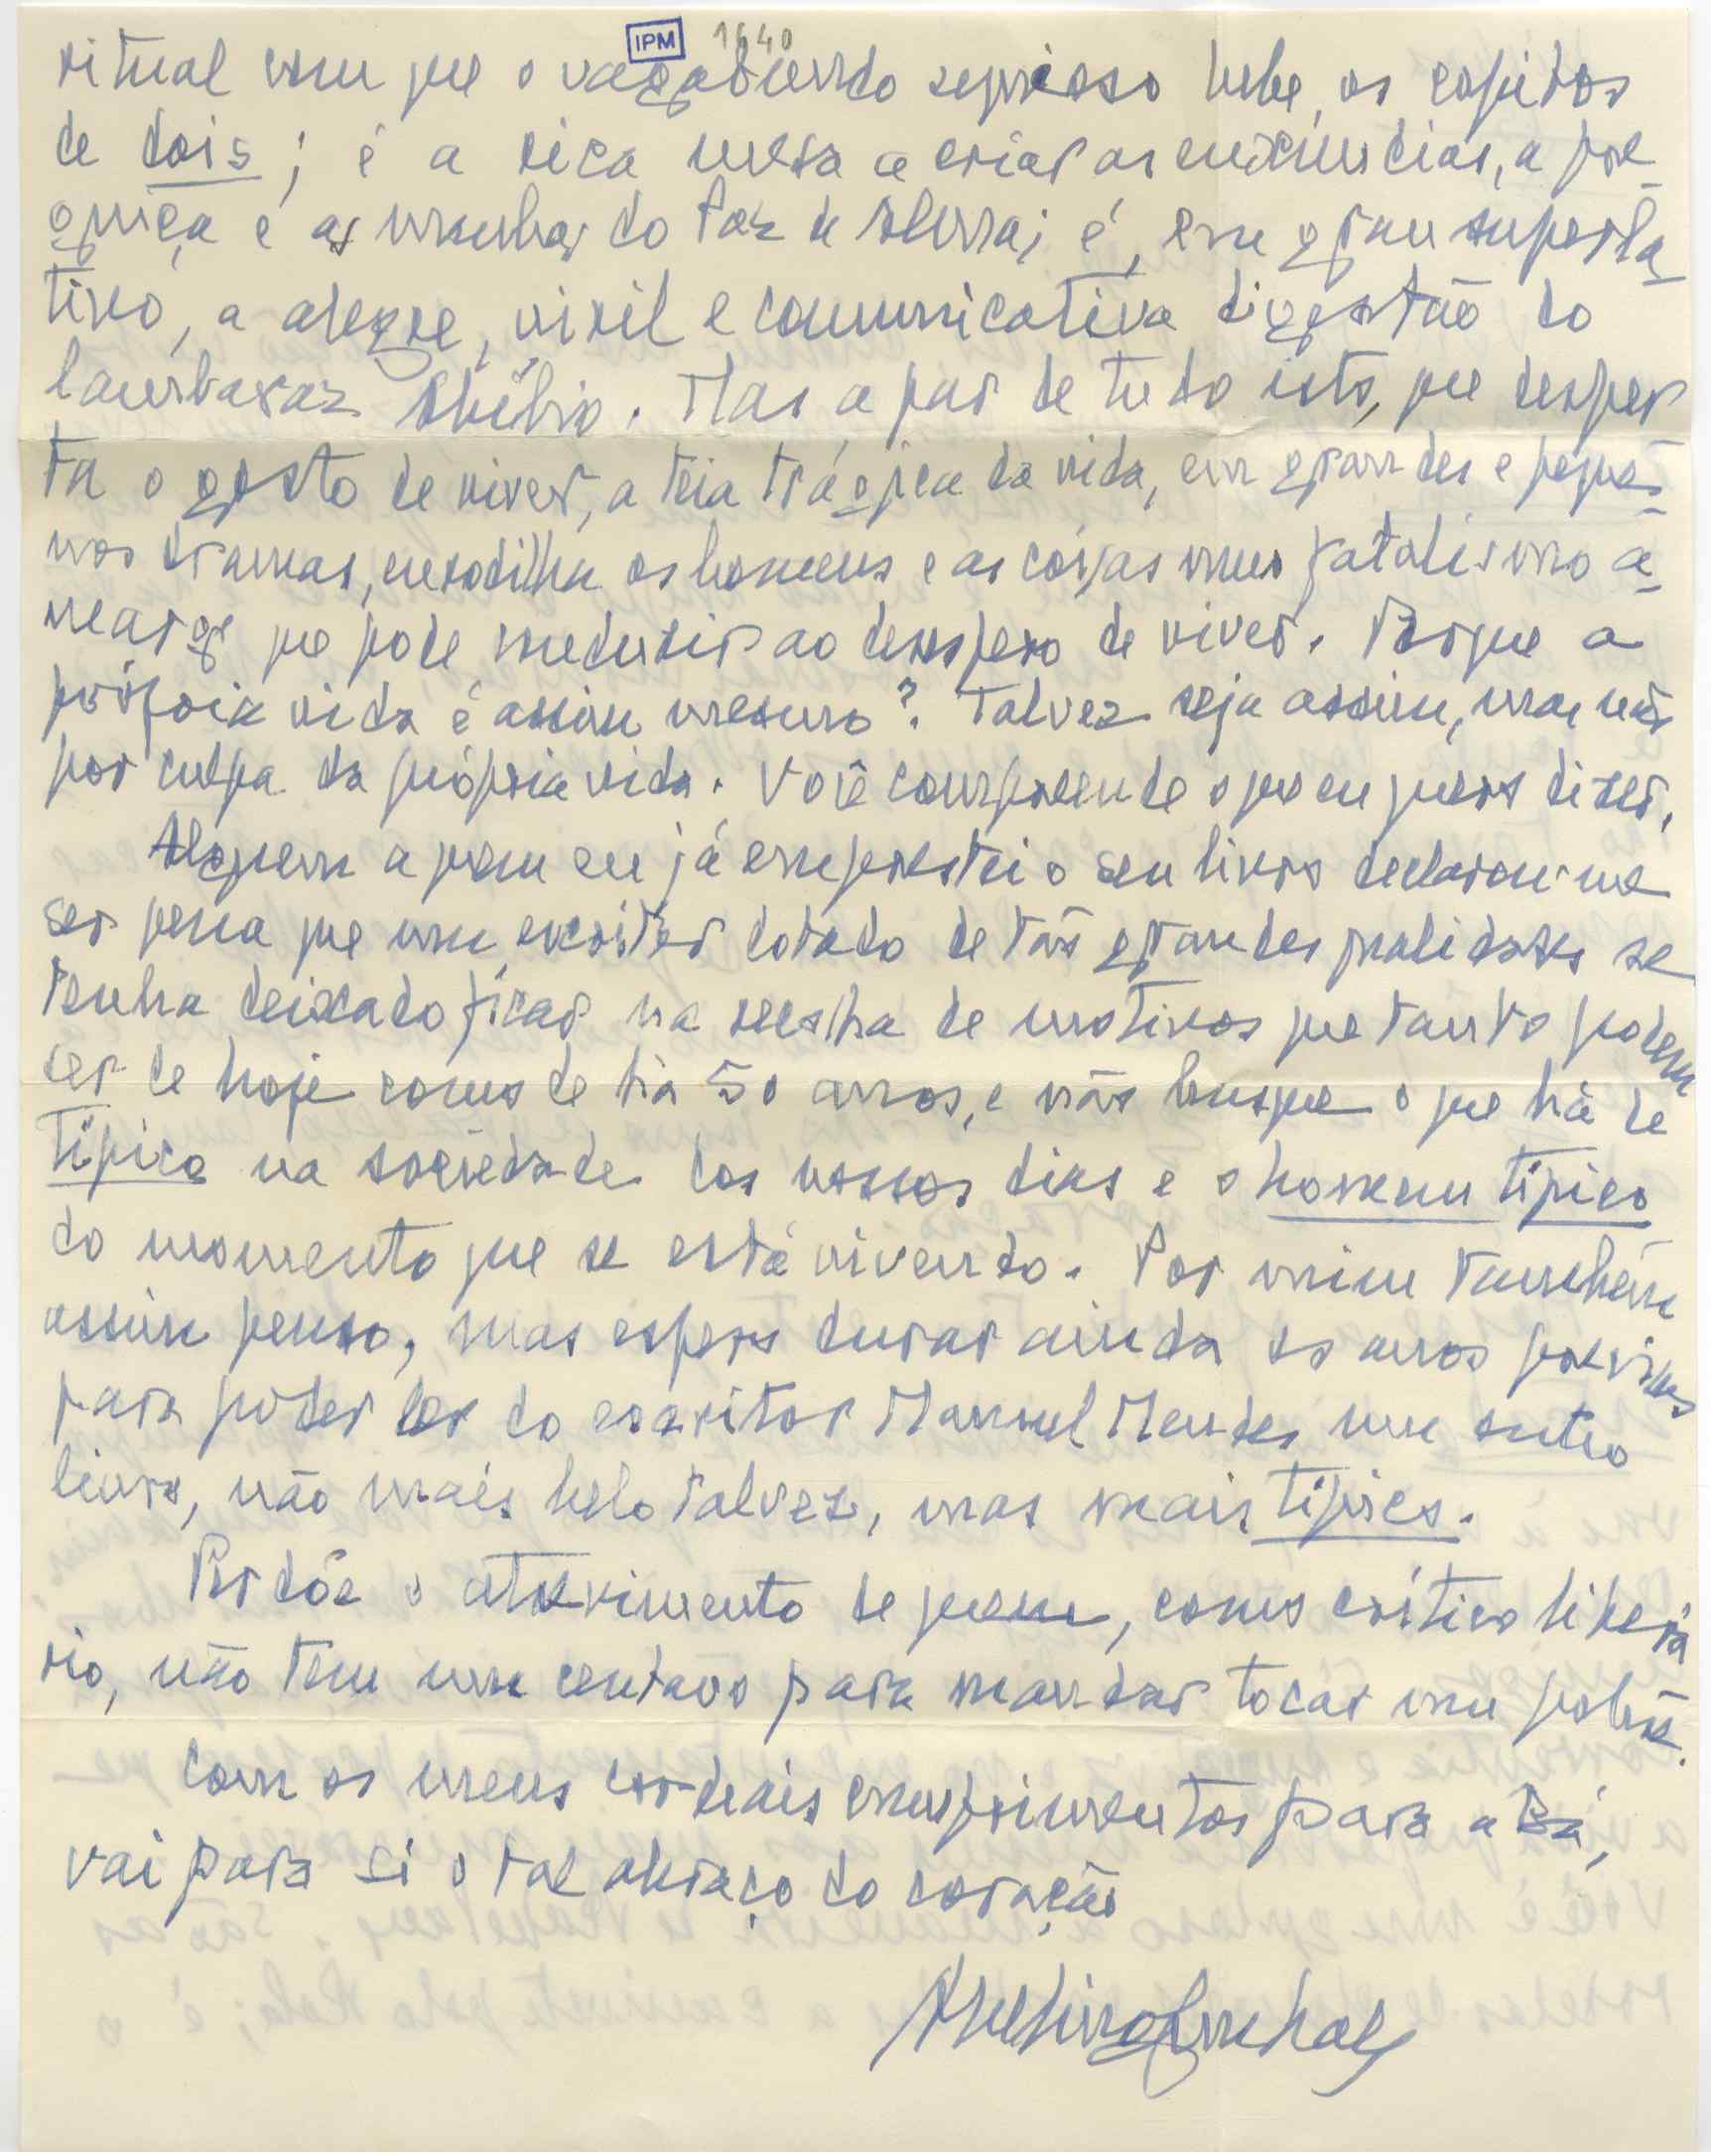 IPM 1640
ritual com que o vagabundo sequioso bebe os copitos
de dois; é a rica mesa a criar as enxúndias, a pre
guiça e as do Paz de é, em grau superla
tivo, a alegre, viril e comunicativa digestão do
lambazaz Mas a par de tudo isto, que desper
ta o gosto de viver, a teia trágica da vida, em grandes e peque
nos dramas, enrodilha os homens e as coisas num fatalismo a
marge que pode ao desespero de viver. Porque a
própria vida é assim mesmo? Talvez seja assim, mas não
por culpa da própria vida. Você compreende o que eu quero dizer.
Alguem a quem eu já emprestei o seu livro declarou-me
ser pena que um escritor dotado de tão grandes qualidades se
tenha deixado ficar na de motivos que tanto podem
ser de hoje como de há 50 anos, e não busque o que há de
típico na sociedade dos nossos dias e o homem típico
do momento que se está vivendo. Por mim também
assim penso, mas espero durar ainda os anos
para poder ler do escritor Manuel Mendes um outro
livro, não mais belo talvez, mas mais típico.
Perdôe o atrevimento de quem, como crítico literá
rio, não tem um centavo para mandar tocar um
Com os meus cordeais cumprimentos para a Bá,
vai para si o tal abraço do coração
Avelino Cunhal